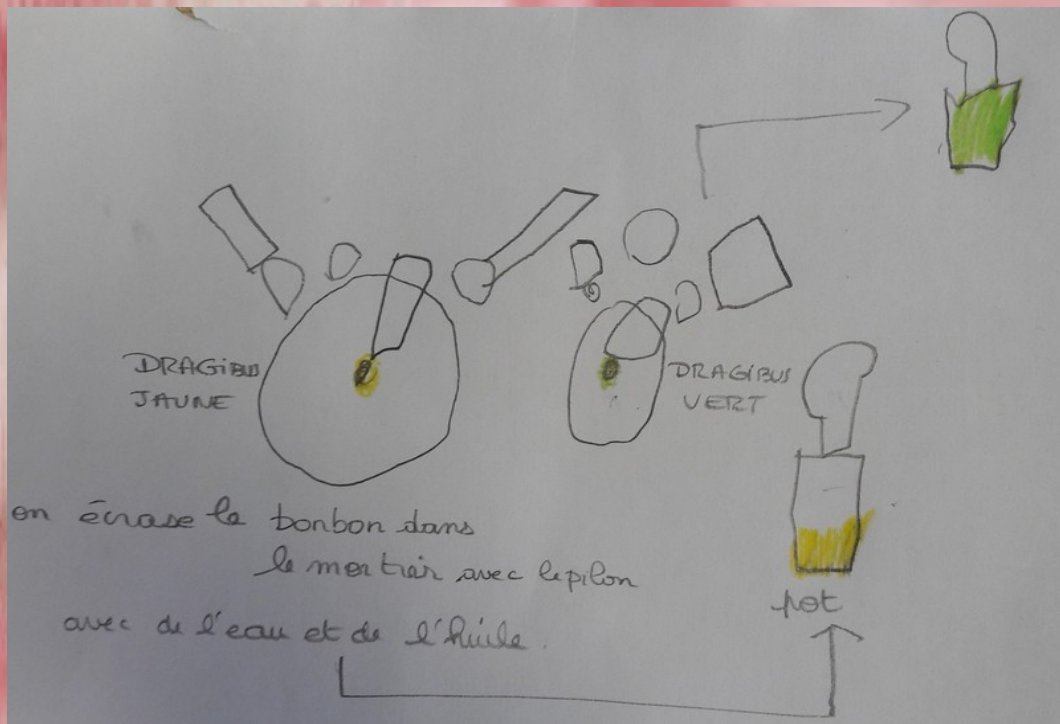 DRAGIBUS
JAUNE
DRAGIBUS
VERT
en écrase le bonbon dans
le mortier avec le pilon
avec de l'eau et de l'huile.
pot